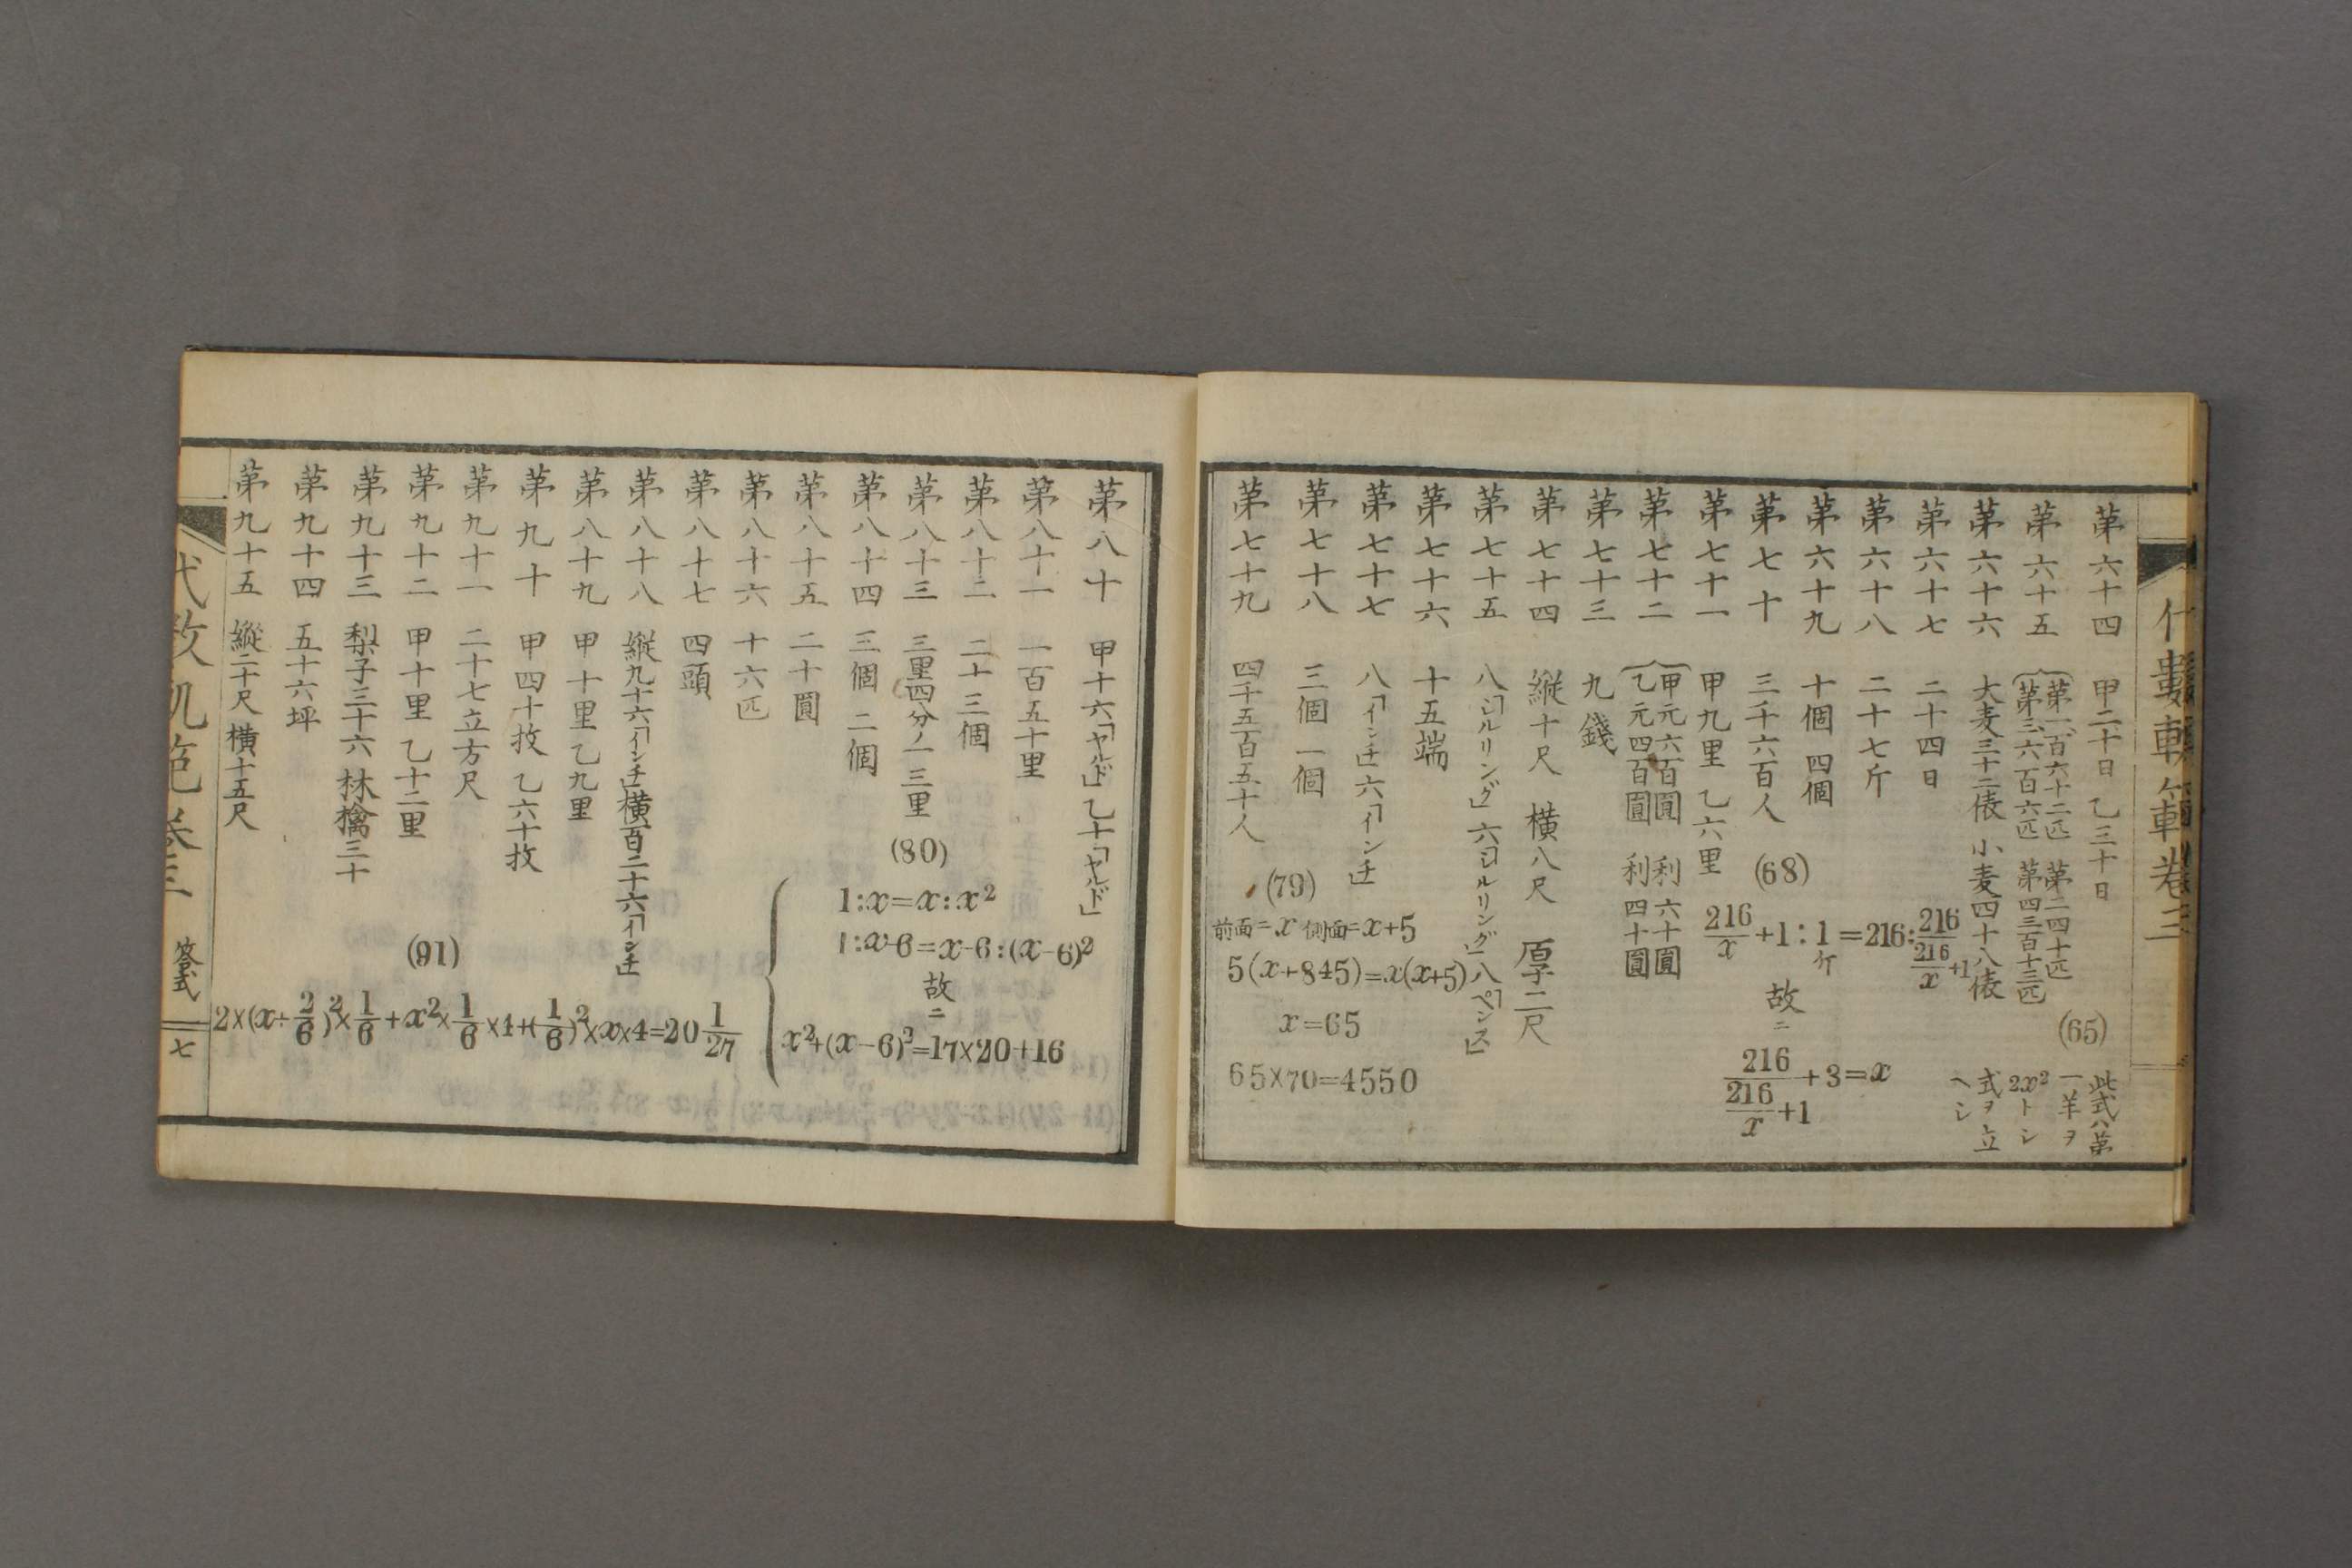 第六十四 甲二十日 乙三十日
第六十五 第一、百六十二匹 第二四十匹
第三、六百六匹 第四三百十三匹
(65)
此式ハ第
一羊ヲ
2x²トシ
式ヲ立
ヘシ
第六十六 大麦三十二俵 小麦四十八俵
第六十七 二十四日
第六十八 二十七斤
第六十九 十個 四個
第七十 三千六百人
(68)
216/x+1:1斤=216:216/(216/x+1)
故ニ
216/(216/x+1)+3=x
第七十一 甲九里 乙六里
第七十二 甲元六百圓 利六十圓
乙元四百圓 利四十圓
第七十三 九錢
第七十四 縦十尺 横八尺 厚二尺
第七十五 八「シルリング」六「シルリング」八「ペンス」
第七十六 十五端
第七十七 八「インチ」六「インチ」
第七十八 三個 一個
第七十九 四千五百五十人
(79)
前面=x 側面=x+5
5(x+845)=x(x+5)
x=65
65×70=4550
第八十 甲十六「ヤルド」乙十「ヤルド」
第八十一 一百五十里
第八十二 二十三個
第八十三 三里四分ノ一 三里
第八十四 三個 二個
第八十五 二十圓
(80)
1:x=x:x²
1:x-6=x-6:(x-6)²
故ニ
x²+(x-6)²=17×20+16
第八十六 十六匹
第八十七 四頭
第八十八 縦九十六「インチ」横百二十六「インチ」
第八十九 甲十里 乙九里
第九十 甲四十枚 乙六十枚
第九十一 二十七立方尺
第九十二 甲十里 乙十二里
第九十三 梨子三十六 林檎三十
第九十四 五十六坪
第九十五 縱二十尺 横十五尺
(91)
2×(x÷2/6)²×1/6+x²×1/6×4+(1/6)²×x×4=20 1/27
答式
七